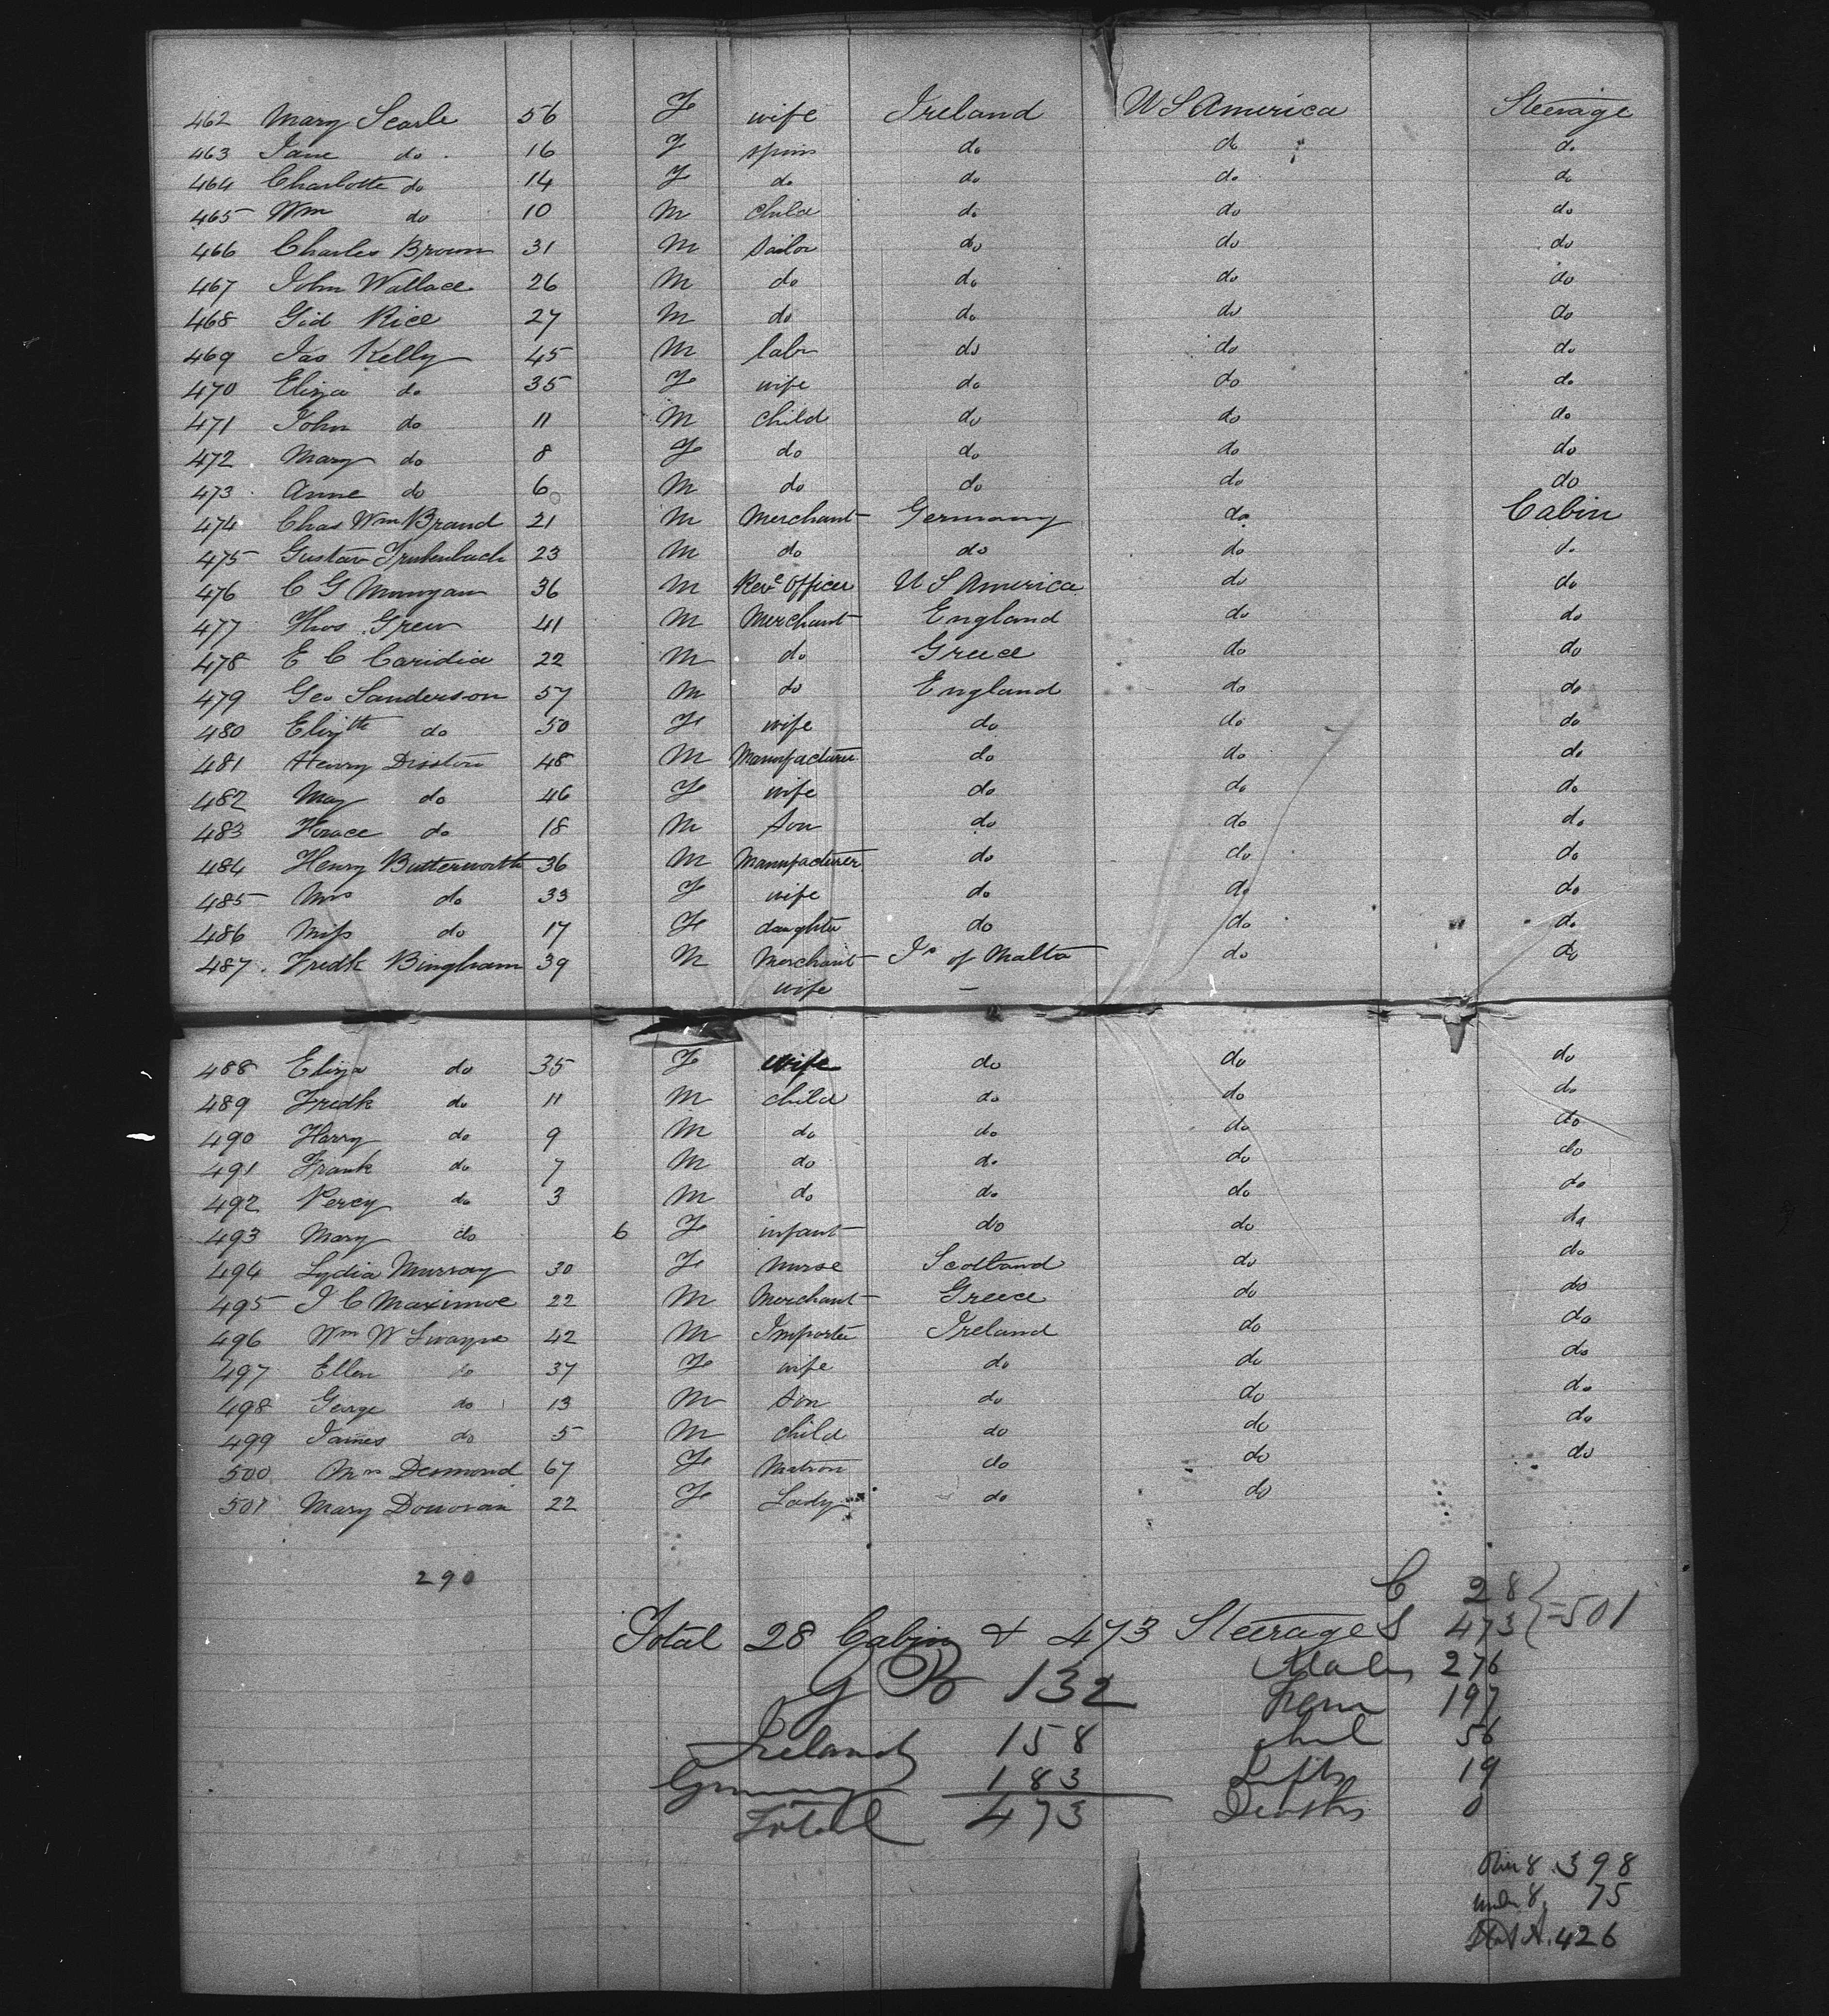 462 Mary Searle 56 F wife Ireland U S America Steerage
463 Jane do 16 F spins do do do
464 Charlotte do 14 F do do do do
465 Wm do 10 M child do do do
466 Charles Brown 31 M Sailor do do do
467 John Wallace 26 M do do do do
468 Gid Rice 27 M do do do do
469 Jas Kelly 45 M labr do do do
470 Eliza do 35 F wife do do do
471 John do 11 M child do do do
472 Mary do 8 F do do do do
473 Anne do 6 M do do do do
474 Chas Wm Brand 21 M Merchant Germany do Cabin
475 Gustav 23 M do do do do
476 C G 36 M Reve Officer U S America do do
477 Thos Grew 41 M Merchant England do do
478 E C Caridia 22 M do Greece do do
479 Geo Sanderson 57 M do England do do
480 Elizth do 50 F wife do do do
481 Henry Disston 48 M Manufacturer do do do
482 May do 46 F wife do do do
483 Horace do 18 M Son do do do
484 Henry Butterworth 36 M Manufacturer do do do
485 Mrs do 33 F wife do do do
486 Miss do 17 F daughter do do do
487 Fredk Bingham 39 M Merchant Is of Malta do do
wife —
488 Eliza do 35 F wife do do do
489 Fredk do 11 M child do do do
490 Harry do 9 M do do do do
491 Frank do 7 M do do do do
492 Percy do 3 M do do do do
493 Mary do 6 F infant do do do
494 Lydia Murray 30 F Nurse Scotland do do
495 J C Maximoe 22 M Merchant Greece do do
496 Wm W Swayne 42 M Importer Ireland do do
497 Ellen do 37 F wife do do do
498 George do 13 M Son do do do
499 James do 5 M child do do do
500 Mrs Desmond 67 F Matron do do do
501 Mary Donovan 22 F Lady do do
290
C 28
Total 28 Cabin & 473 Steerage S 473 } = 501
G B 132 Males 276
Fem 197
Ireland 158 Chil 56
Germany 183 Infts 19
Total 473 Deaths 0
Over 8 . 398
under 8, 75
Stat A. 426